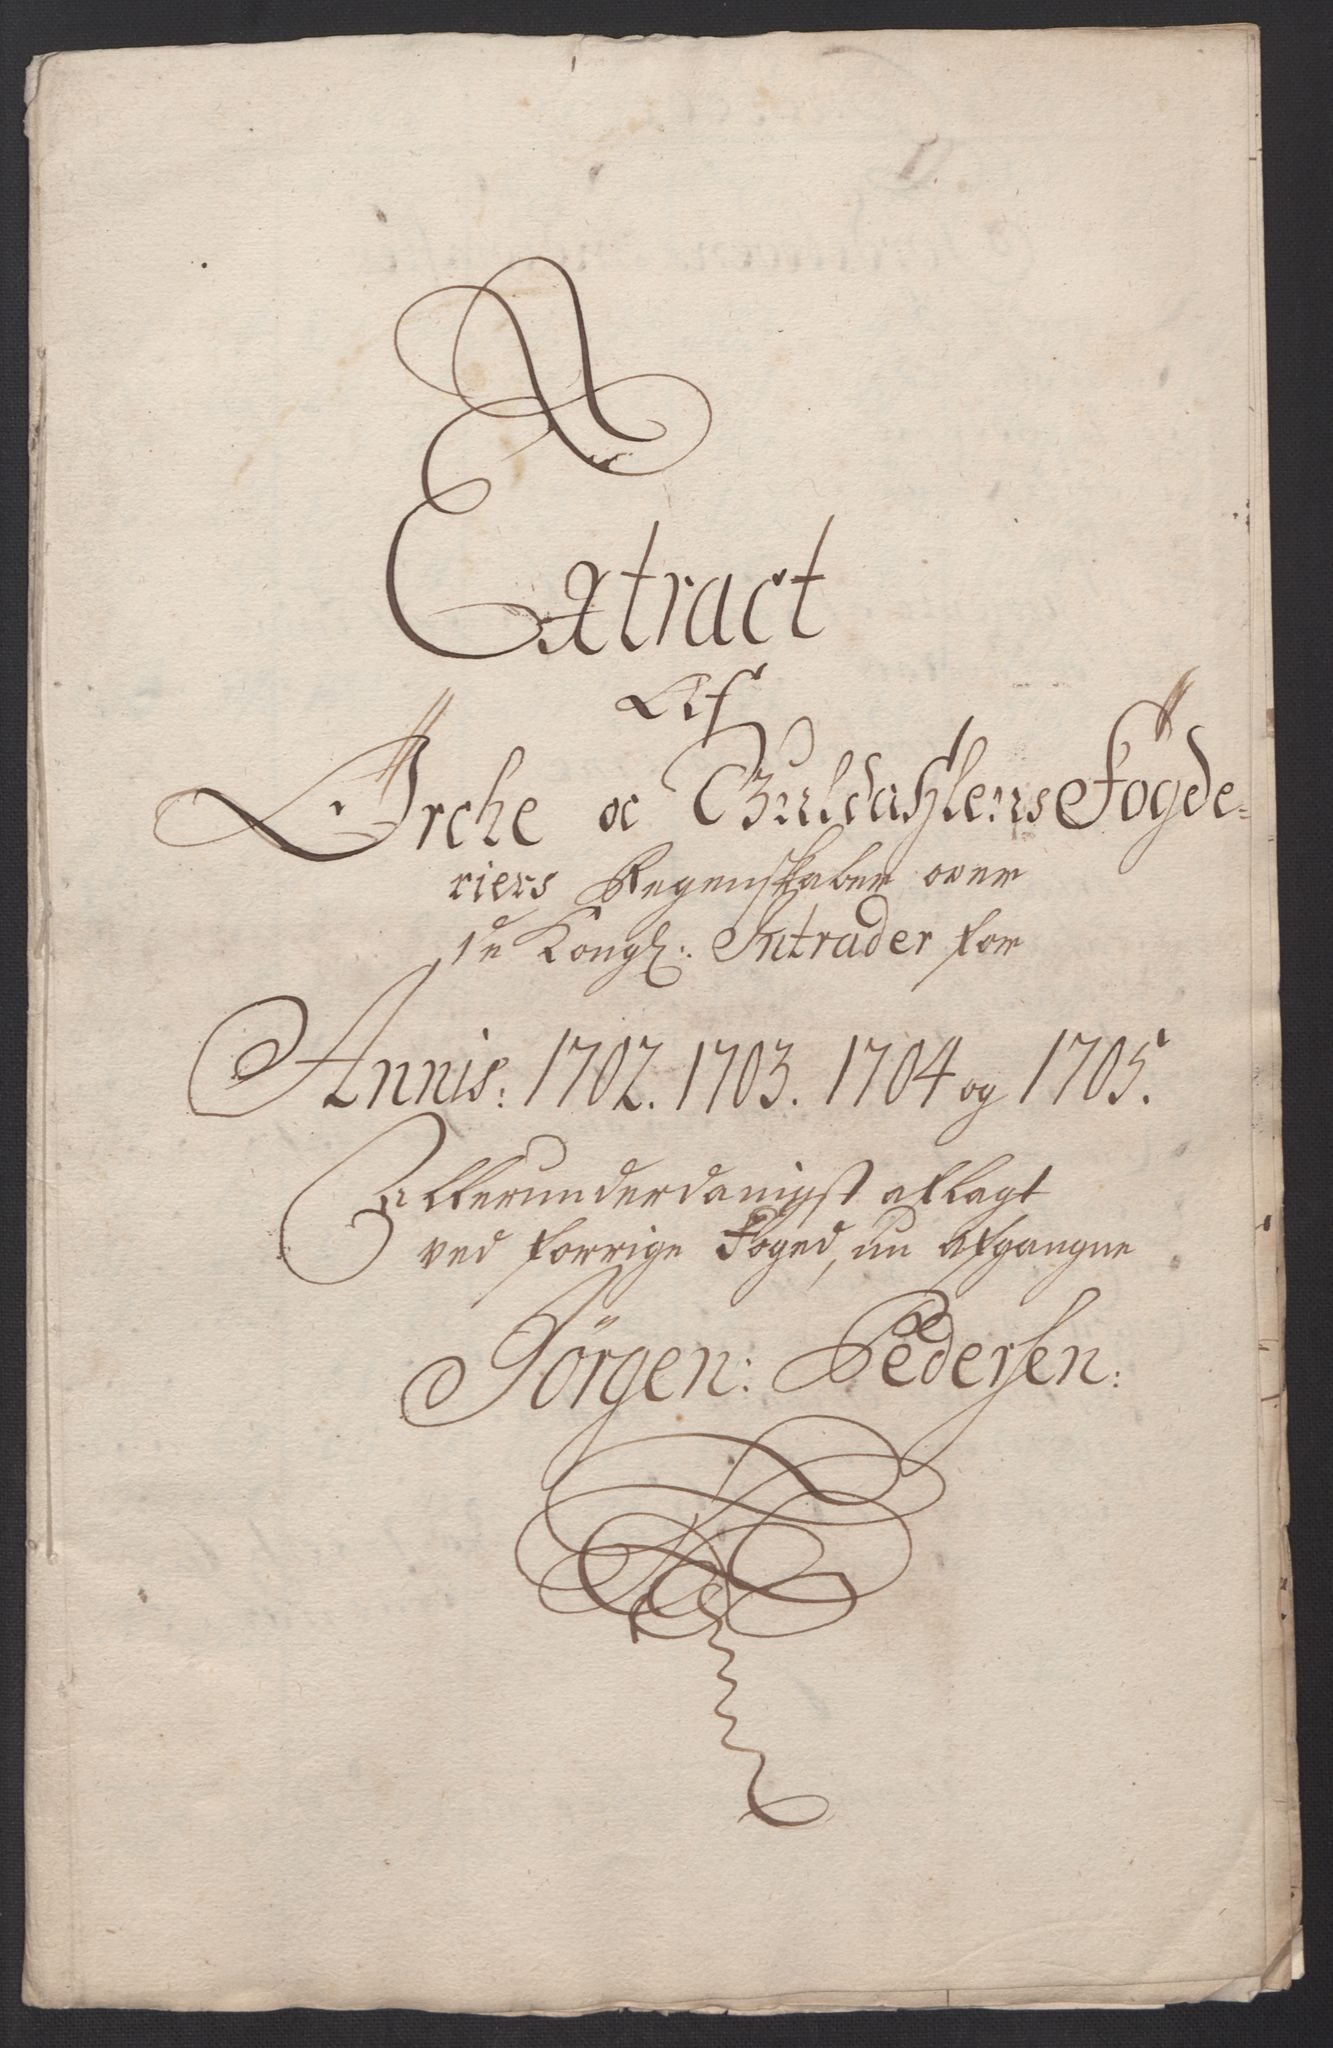 Extract
Af
Ørche oc Guldahlens Fogde-
riers Regenskaber over
de Kongl: Intrader for
Annis: 1702. 1703. 1704 og 1705.
Allerunderdanigst aflagt
ved forrige Foged, nu afgangne
Jörgen: Pedersen: